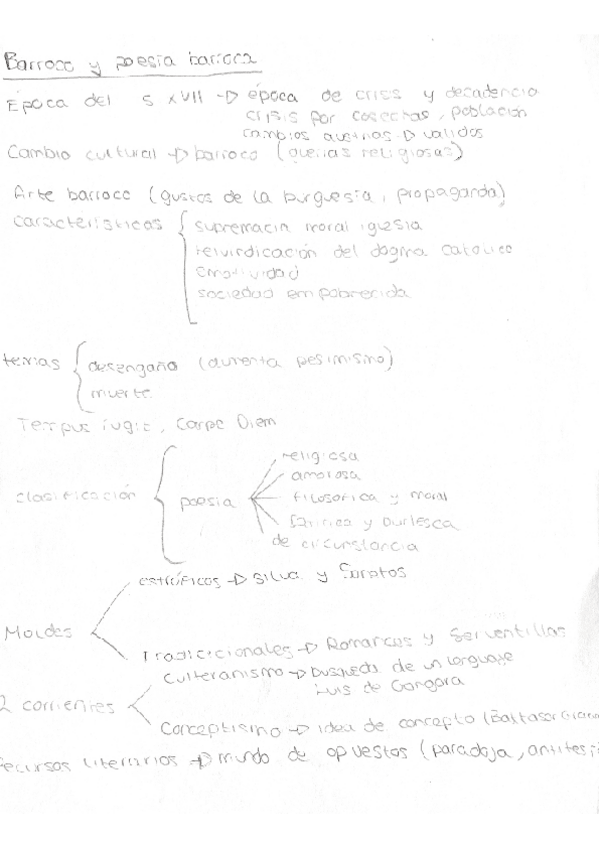 Barroco y poesía barroca
Época del S XVII → época de crisis y decadencia
crisis por cosechas, población
cambios → validos
Cambio cultural → barroco (guerras religiosas)
Arte barroco (gustos de la burguesía, propaganda)
características { supremacía moral iglesia
reivindicación del dogma católico
emotividad
sociedad empobrecida
temas { desengaño (aumenta pesimismo)
muerte
Tempus fugit, Carpe Diem
clasificación { poesia
religiosa
amorosa
filosófica y moral
Satírica y burlesca
de circunstancia
Moldes
estróficos → Silva y Sonetos
Tradicionales → Romances y
2 corrientes
Culteranismo → busqueda de un lenguaje
Luis de Gongora
Conceptismo → idea de concepto (Baltasar Grac
recursos literarios → mundo de opuestos (paradoja, antítesi